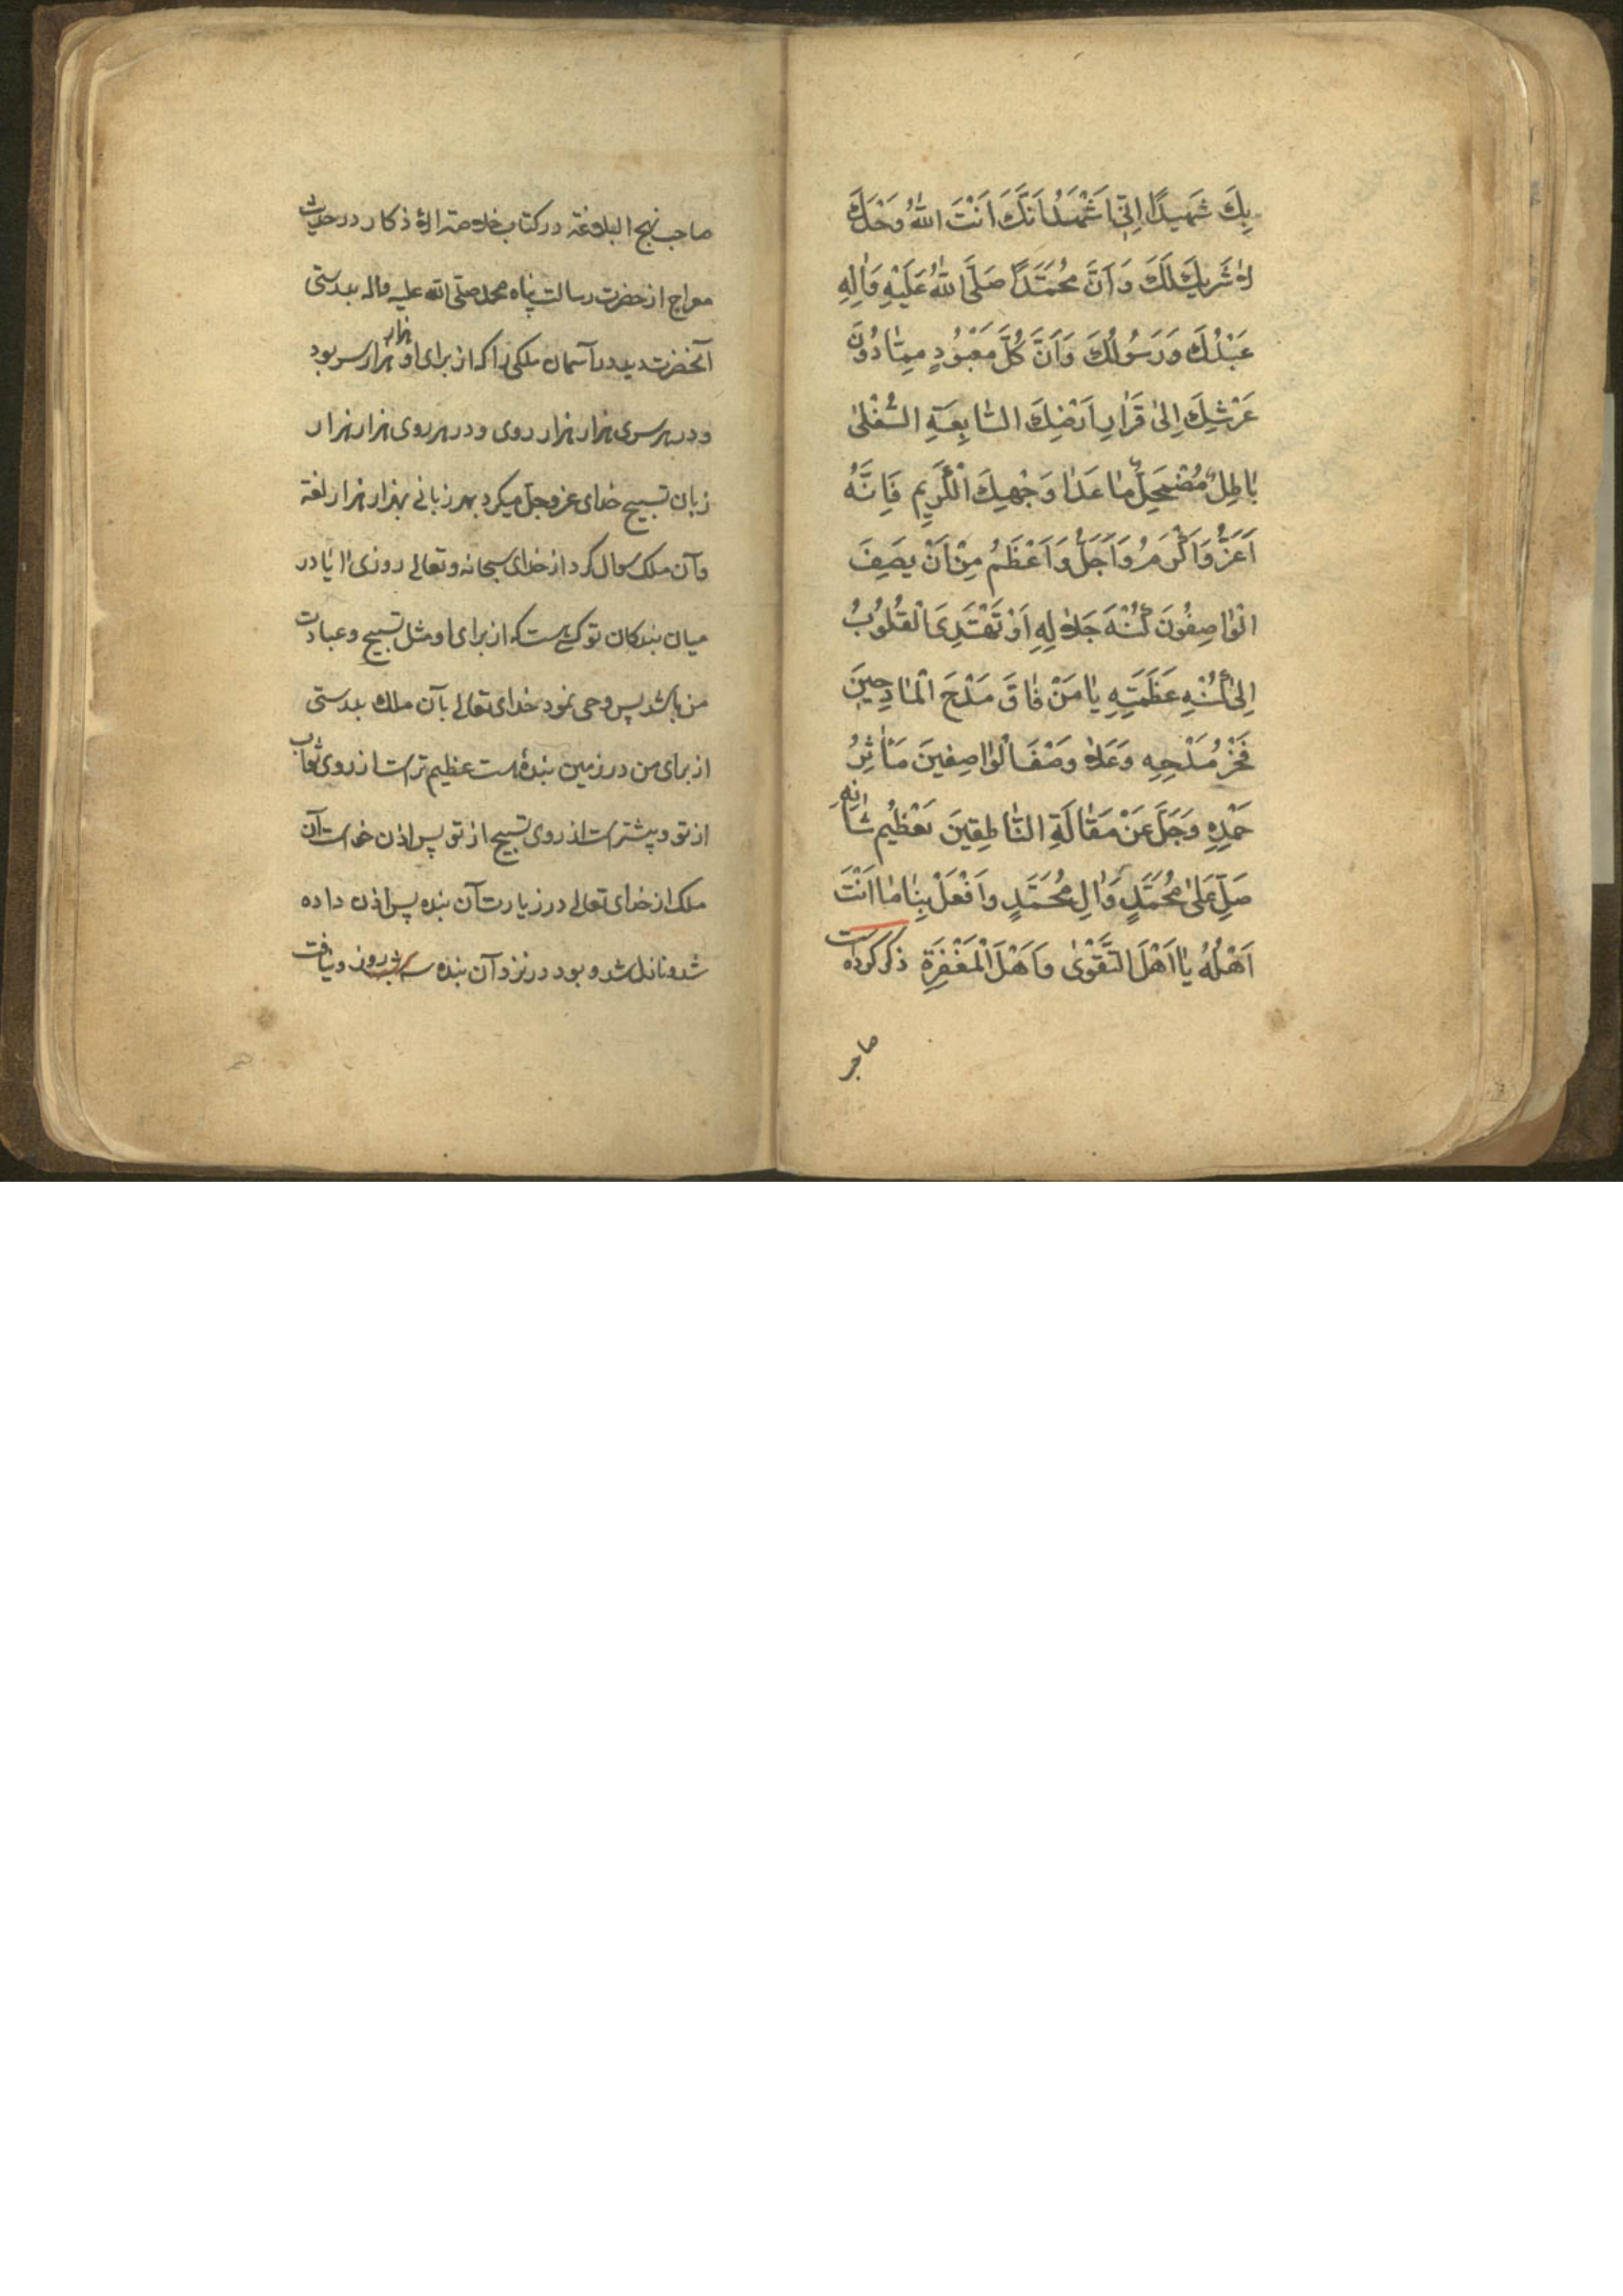 بِكَ شَهِيدًا اِنّي اَشْهَدُ اَنَّكَ اَنْتَ اللهُ وَحْدَكَ
لاٰ شَرِيكَ لَكَ وَ اَنَّ مُحَمَّدًا صَلَّى اللهُ عَلَيْهِ وَاٰلِهِ
عَبْدُكَ وَ رَسُولُكَ وَ اَنَّ كُلَّ مَعْبُودٍ مِمّٰا دُوْنَ
عَرْشِكَ اِلىٰ قَرٰارِ اَرْضِكَ السّٰابِعَةِ السُّفْلىٰ
بٰاطِلٌ مُضْمَحِلٌّ مٰا عَدٰا وَجْهِكَ الْكَرِيمِ فَاِنَّهُ
اَعَزُّ وَ اَكْرَمُ وَ اَجَلُّ وَ اَعْظَمُ مِنْ اَنْ يَصِفَ
الْوٰاصِفُونَ كُنْهَ جَلاٰلِهِ اَوْ تَهْتَدِىَ الْقُلُوبُ
اِلىٰ كُنْهِ عَظَمَتِهِ يٰا مَنْ فٰاقَ مَدْحَ الْمٰادِحِينَ
فَخْرُ مَدْحِهِ وَ عَلاٰ وَصْفَ الْوٰاصِفِينَ مَآثِرُ
حَمْدِهِ وَ جَلَّ عَنْ مَقٰالَةِ النّٰاطِقِينَ تَعْظِيمُ شَانِهِ
صَلِّ عَلىٰ مُحَمَّدٍ وَ اٰلِ مُحَمَّدٍ وَ افْعَلْ بِنٰا مٰا اَنْتَ
اَهْلُهُ يٰا اَهْلَ التَّقْوىٰ وَ اَهْلَ الْمَغْفِرَةِ ذکر کرده است
صاحب
صاحب نهج البلاغة در کتاب خلاصة الاذکار در حدیث
معراج از حضرت رسالت پناه محمد صلی الله علیه واله بدرستی
آنحضرت دید در آسمان ملکی را که از برای او هزار هزار سر بود
و در هر سری هزار هزار روی و در هر روی هزار هزار
زبان تسبیح خدای عزوجل میکرد بهر زبانی بهزار هزار لغة
و آن ملک سوال کرد از خدای سبحانه و تعالی روزی آیا در
میان بندکان تو کسی هست که از برای او مثل تسبیح و عبادت
من باشد پس وحی نمود خدای تعالی بآن ملک بدرستی
از برای من در زمین بندۀ هست عظیم تر است از روی ثواب
از تو و بیشتر است از روی تسبیح از تو پس اذن خواست آن
ملک از خدای تعالی در زیارت آن بنده پس اذن داده
شد و نازل شد و بود در نزد آن بنده سه شبروز و نیافت